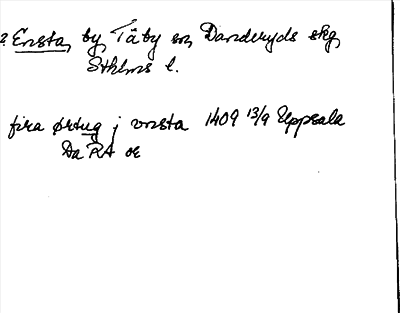 2. Ensta, by, Täby sn, Danderyds skg,
Sthlms l.
fira ørtug j ønsta 1409 13/9 Uppsala
Da RA or